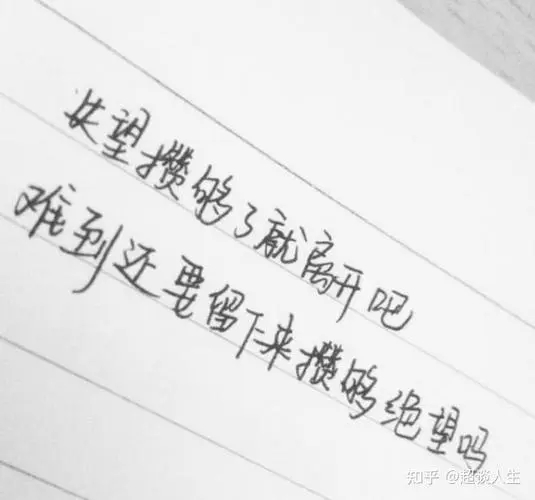 失望攒够了就离开吧
难到还要留下来攒够绝望吗
知乎 @超谈人生